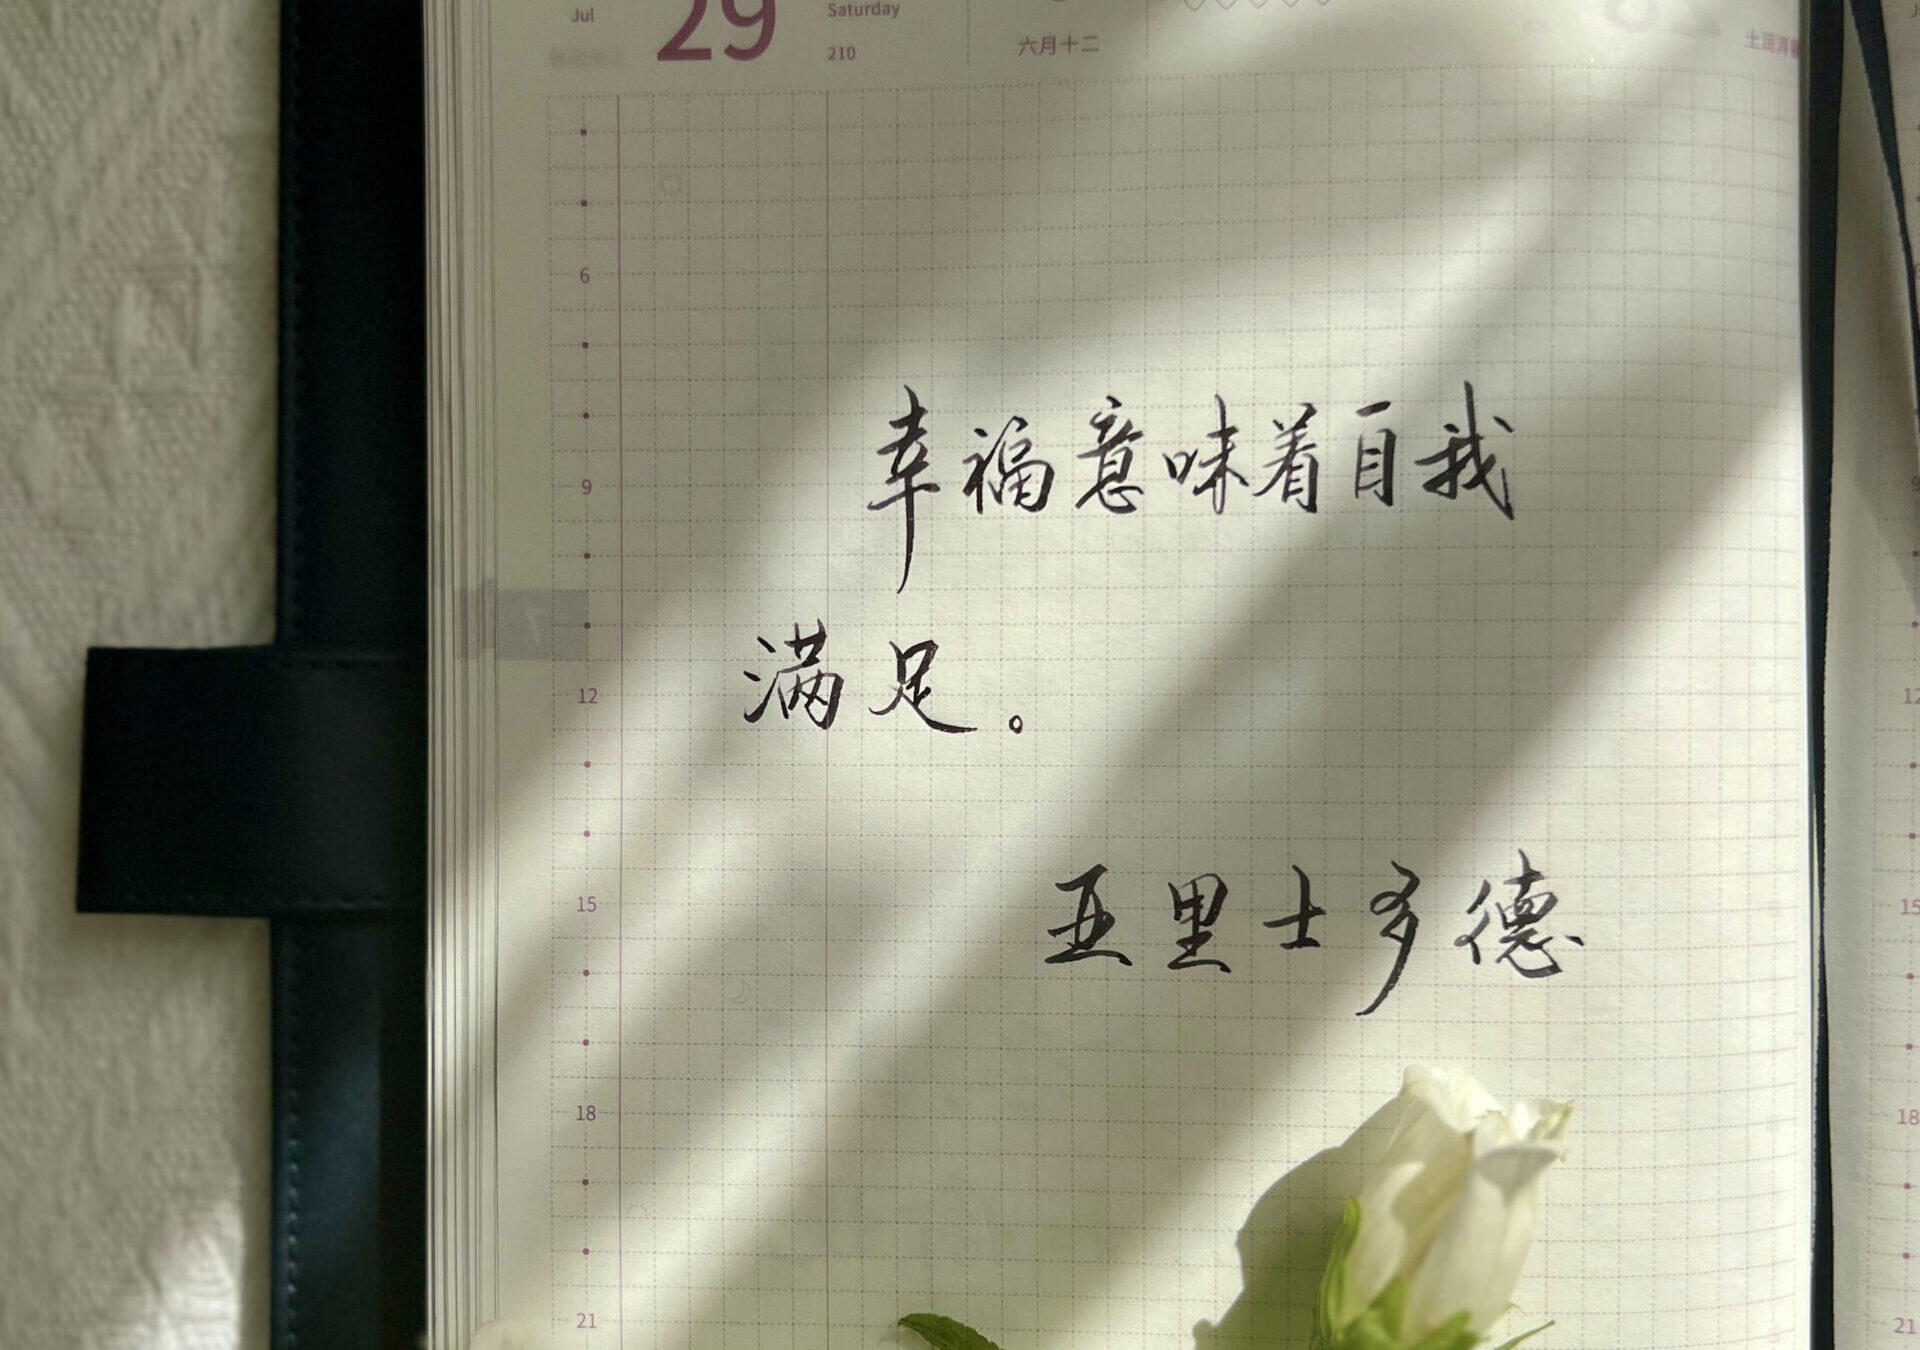 Jul 29 Saturday
210 六月十二
6
9
12
15
18
21
幸福意味着自我
满足。
亚里士多德
7
9
12
15
18
21